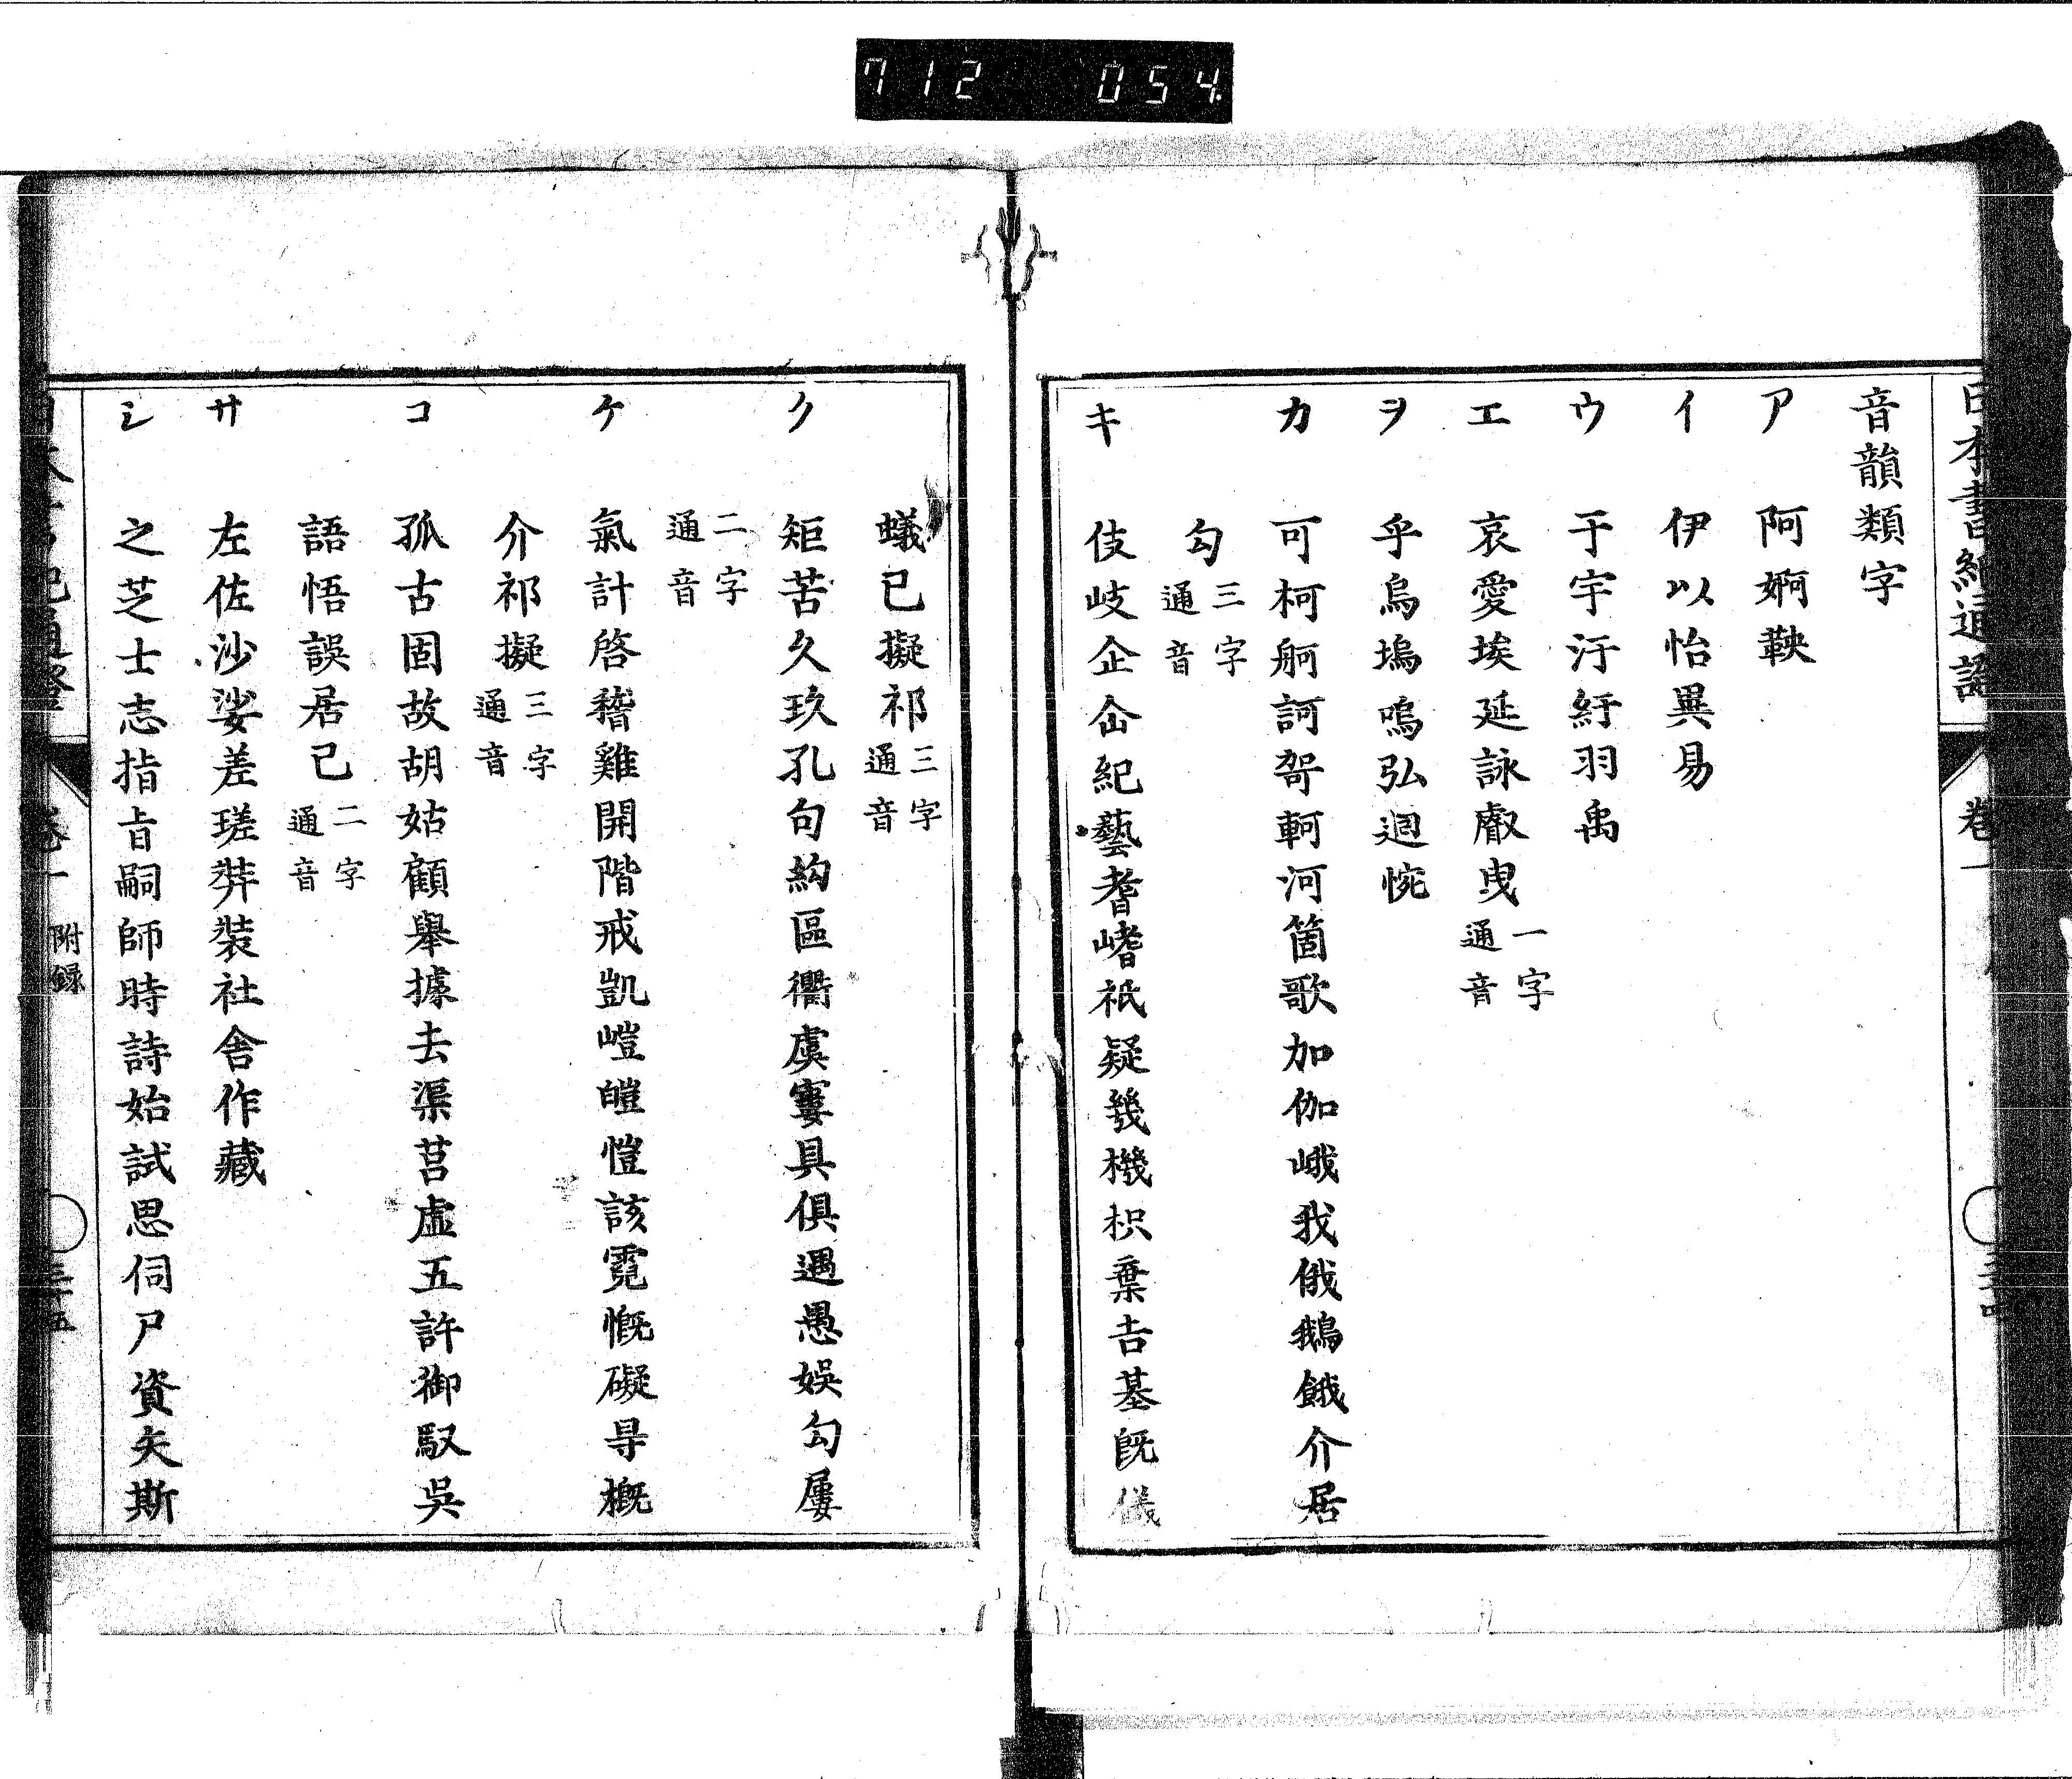 712 054
日本書紀通證
卷一
音韻類字
ア 阿婀鞅
イ 伊以怡異易
ウ 于宇汙紆羽禹
エ 哀愛埃延詠叡曳 一字通音
ヲ 乎烏塢嗚弘迴惋
カ 可柯舸訶哿軻河箇歌加伽峨我俄鵝餓介居
勾 三字通音
キ 伎岐企仚紀藝耆嗜祇疑幾機枳棄吉基既儀
蟻已擬祁 三字通音
ク 矩苦久玖孔句絇區衢虞窶具俱遇愚娛勾屢
二字通音
ケ 氣計啓稽雞開階戒凱嵦暟愷該霓慨礙㝵概
介祁擬 三字通音
コ 孤古固故胡姑顧舉據去渠莒虛五許御馭吳
語悟誤居己 二字通音
サ 左佐沙娑差瑳弉裝社舍作藏
シ 之芝士志指旨嗣師時詩始試思伺尸資矢斯
卷一 附錄 三十五